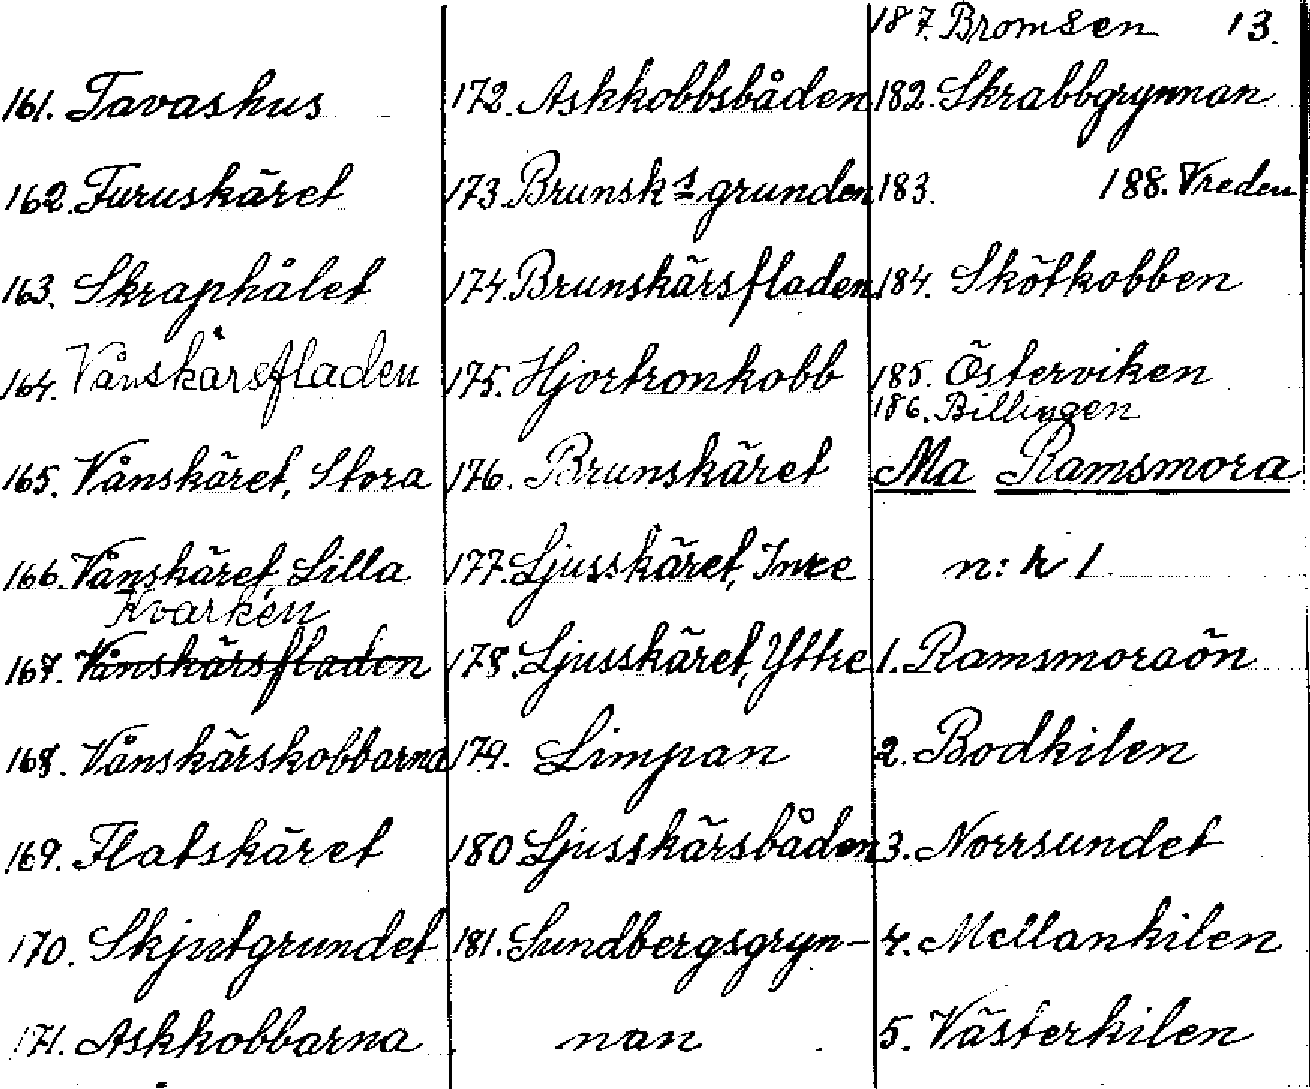 161. Tavashus
162. Furuskäret
163. Skraphålet
164. Vånskärsfladen
165. Vånskäret, Stora
166. Vånskäret, Lilla
Kvarken
167. Vånskärsfladen
168. Vånskärskobbarna
169. Flatskäret
170. Skjutgrundet
171. Askkobbarna
172. Askkobbsbåden
173. Brunsk:s grunden
174. Brunskärsfladen
175. Hjortronkobb
176. Brunskäret
177. Ljusskäret, Inre
178. Ljusskäret, Yttre
179. Limpan
180 Ljusskärsbåden
181. Sundbergsgryn-
nan
187. Bromsen 13.
182. Skrabbgrynnan
183. 188. Vreden
184. Skötkobben
185. Österviken
186. Billingen
Ma Ramsmora
n:r 1
1. Ramsmoraön
2. Bodkilen
3. Norrsundet
4. Mellankilen
5. Västerkilen